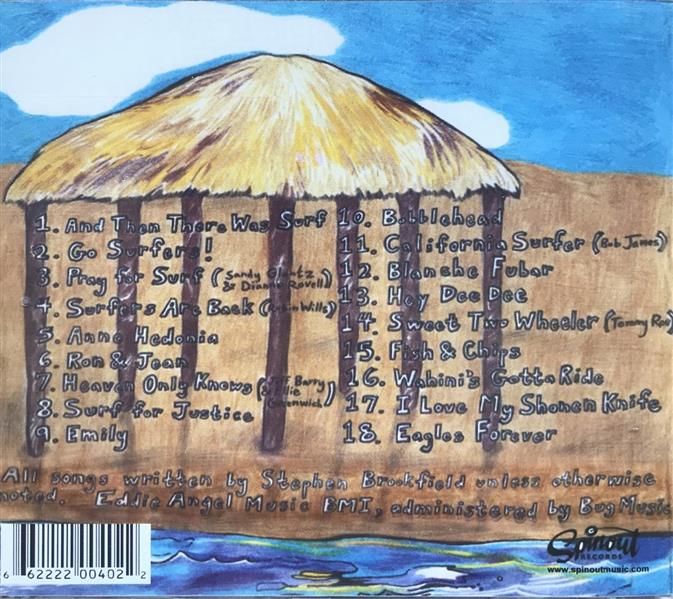 1. And Then There Was Surf
2. Go Surfers!
3. Pray for Surf (Sandy Glantz
& Dianne Rovell)
4. Surfers Are Back (Robin Wills)
5. Anne Hedonia
6. Ron & Jean
7. Heaven Only Knows (Jeff Barry
& Ellie
Greenwich)
8. Surf for Justice
9. Emily
10. Bobblehead
11. California Surfer (Bob James)
12. Blanche Fubar
13. Hey Dee Dee
14. Sweet Two Wheeler (Tommy Roe)
15. Fish & Chips
16. Wahini's Gotta Ride
17. I Love My Shonen Knife
18. Eagles Forever
All songs written by Stephen Brookfield unless otherwise
noted. Eddie Angel Music BMI, administered by Bug Music
Spinout
RECORDS
www.spinoutmusic.com
6 62222 00402 2